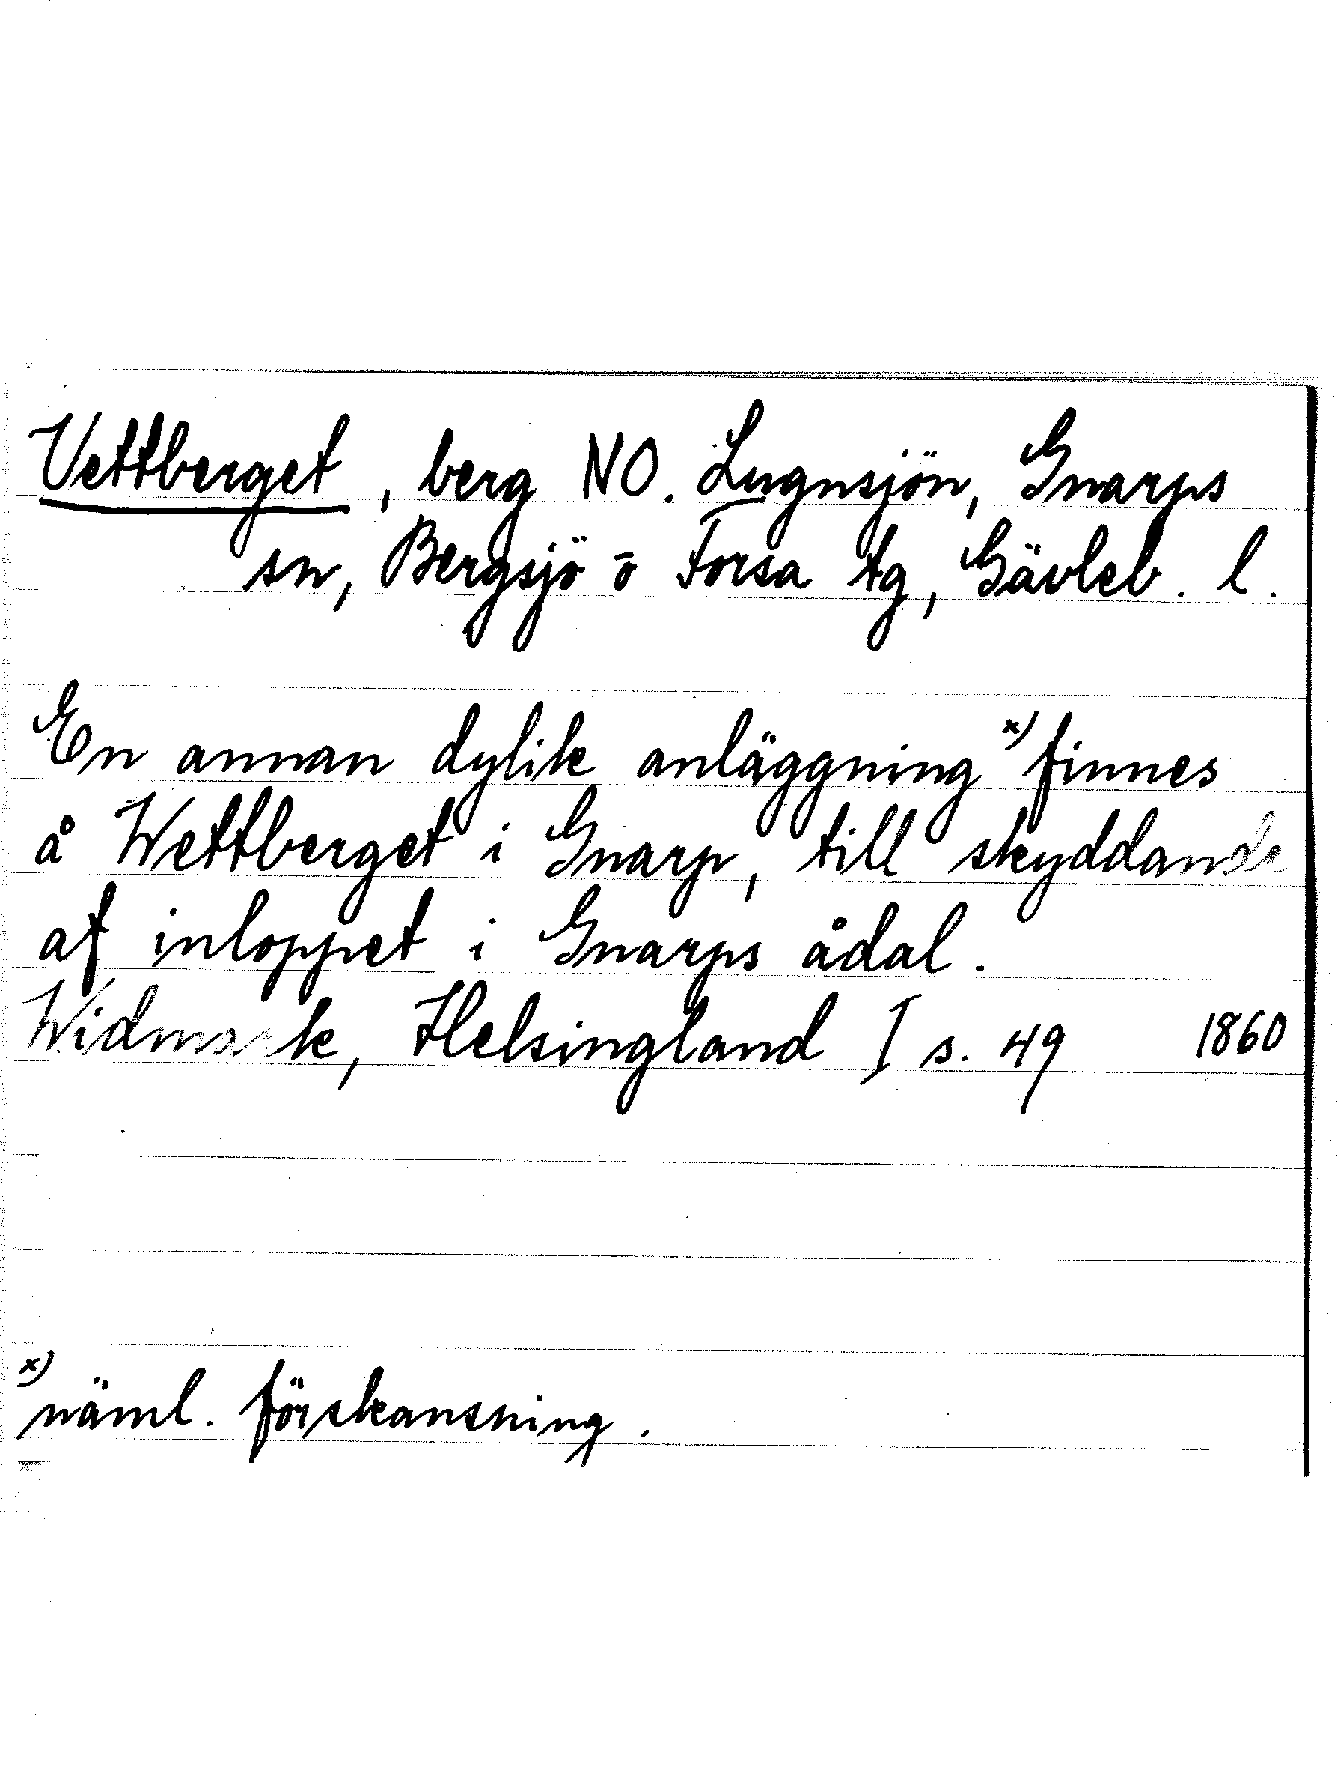 Vettberget, berg NO. Lugnsjön, Gnarps
sn, Bergsjö o Forsa tg, Gävleb. l.
En annan dylik anläggning x) finnes
å Wettberget i Gnarp, till skyddande
af inloppet i Gnarps ådal.
Widmark, Helsingland I s. 49 1860
x) näml. förskansning.